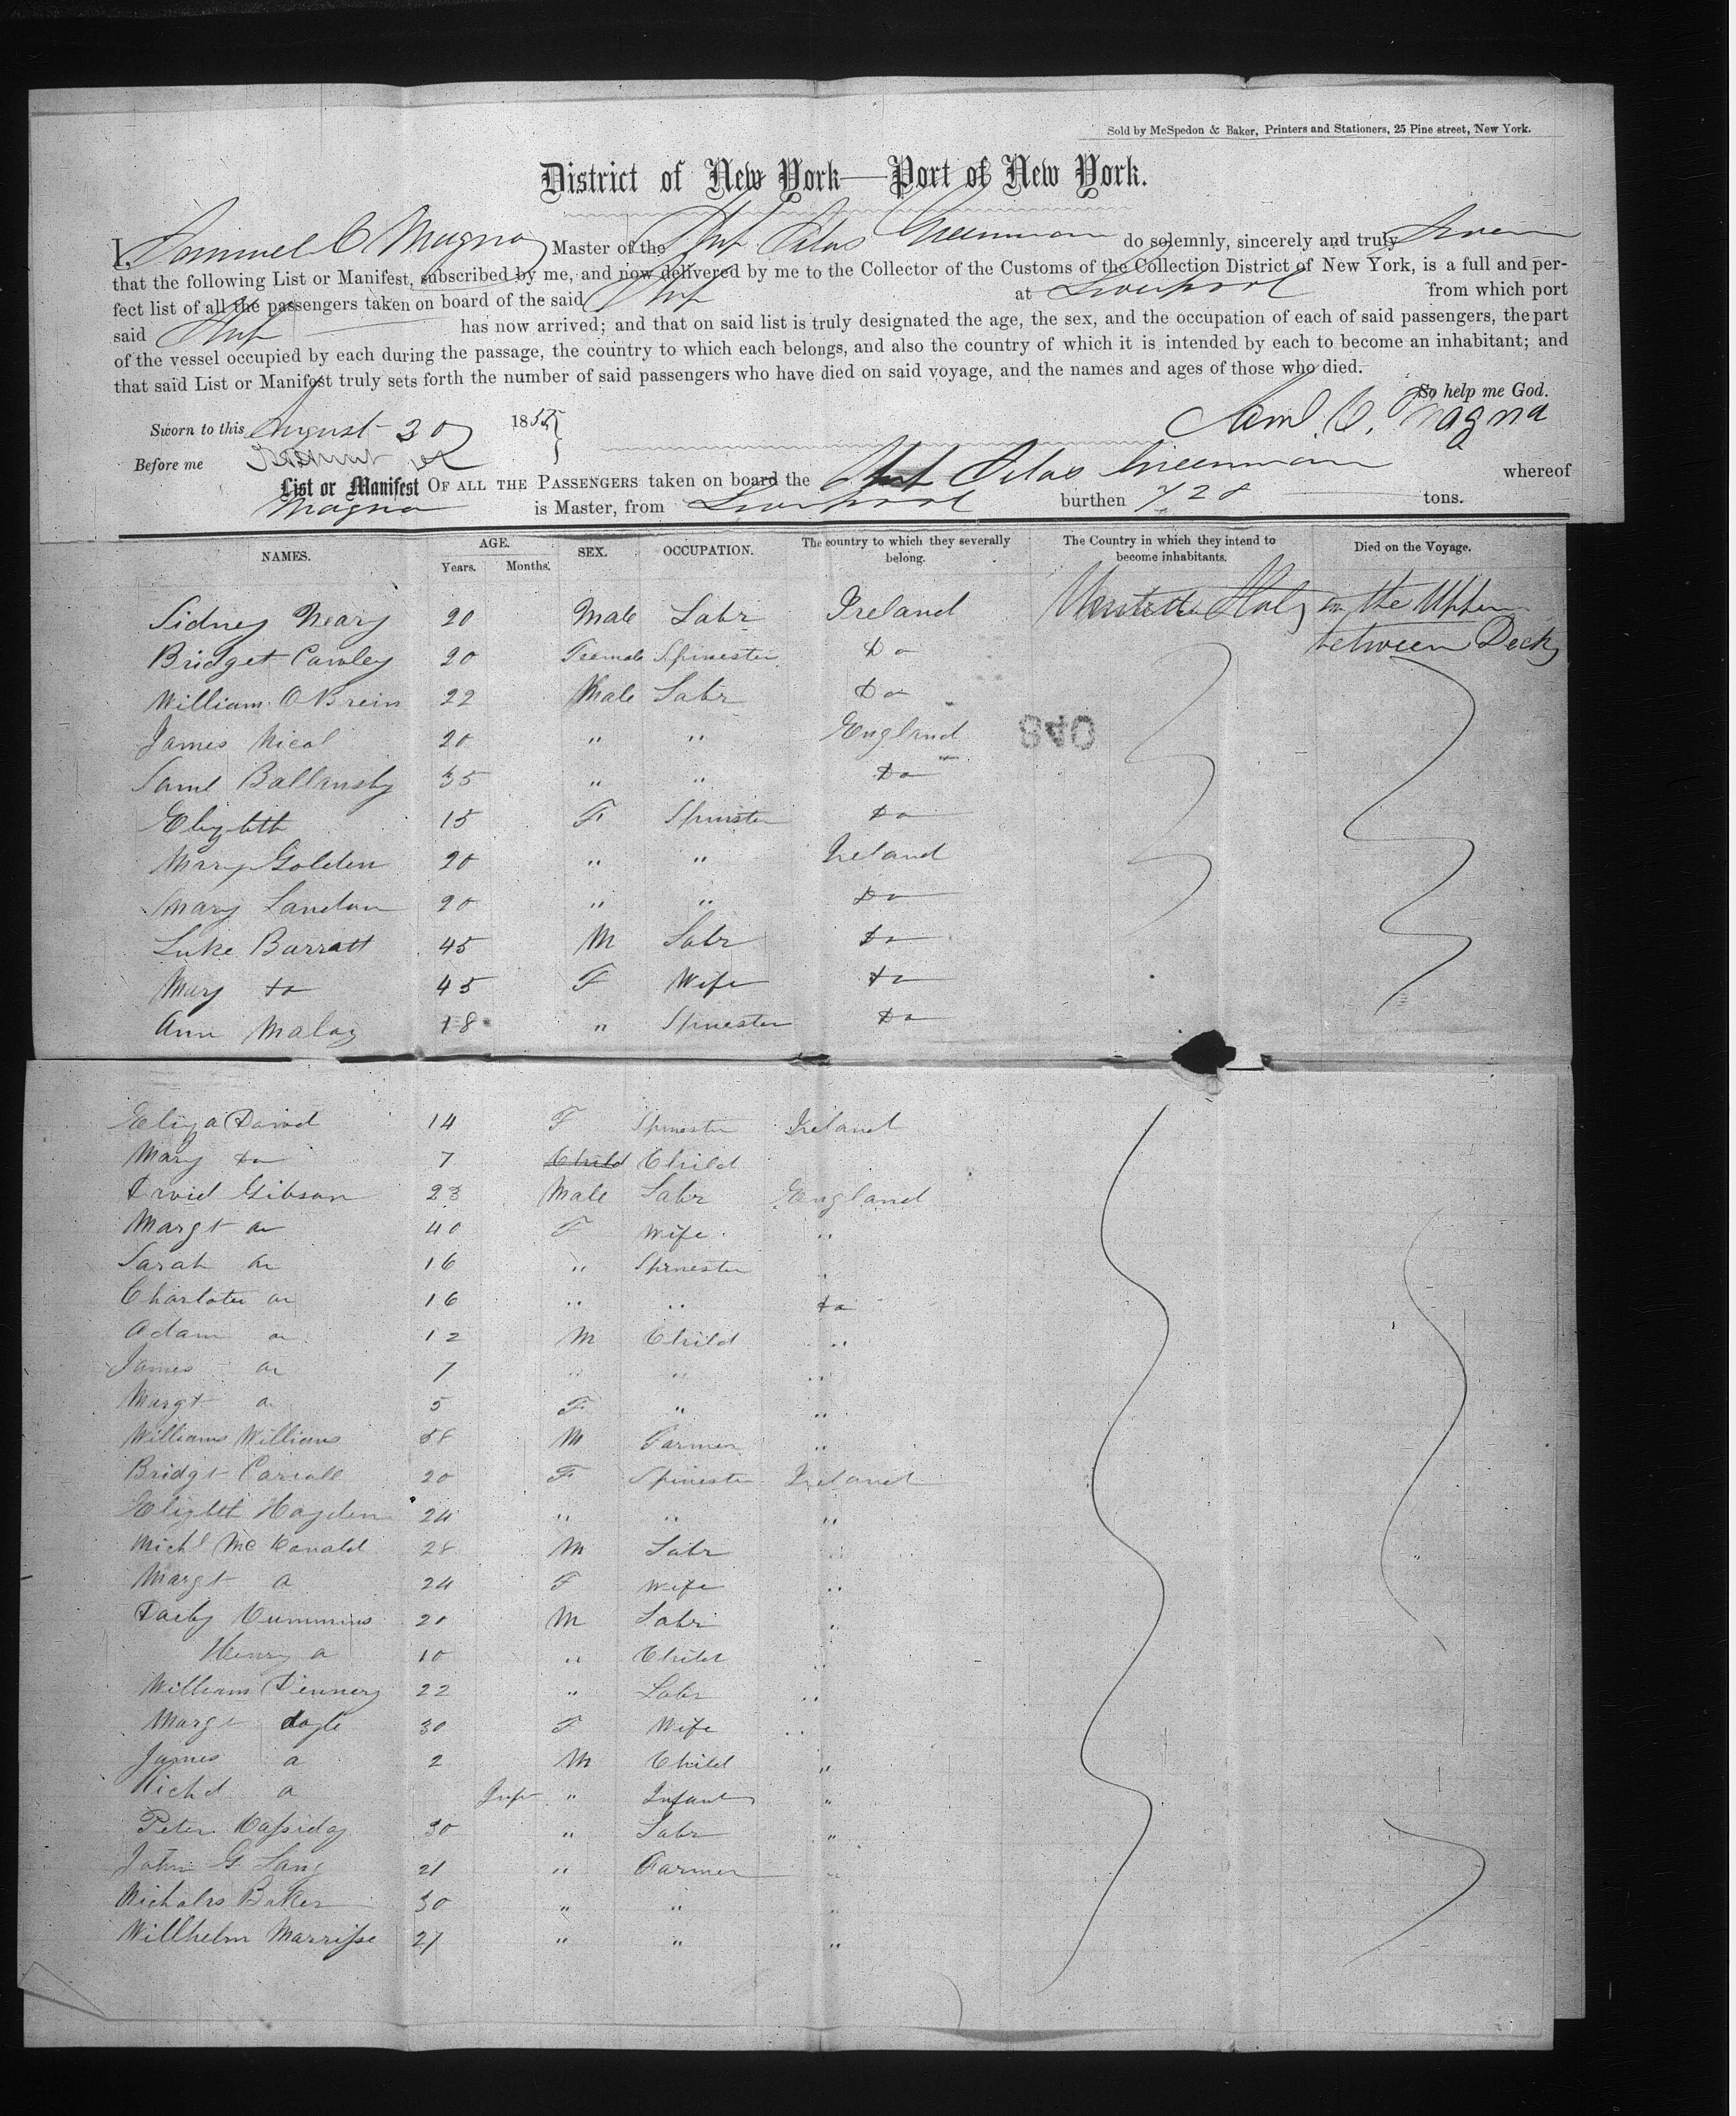 Sold by McSpedon & Baker, Printers and Stationers, 25 Pine street, New York.
District of New York—Port of New York.
I, Samuel C Magna Master of the Ship Silas Greenman do solemnly, sincerely and truly Swear
that the following List or Manifest, subscribed by me, and now delivered by me to the Collector of the Customs of the Collection District of New York, is a full and per-
fect list of all the passengers taken on board of the said Ship at Liverpool from which port
said Ship has now arrived; and that on said list is truly designated the age, the sex, and the occupation of each of said passengers, the part
of the vessel occupied by each during the passage, the country to which each belongs, and also the country of which it is intended by each to become an inhabitant; and
that said List or Manifest truly sets forth the number of said passengers who have died on said voyage, and the names and ages of those who died.
So help me God.
Sworn to this August 30 1855 Saml. C. Magna
Before me
List or Manifest OF ALL THE PASSENGERS taken on board the Ship Silas Greenman whereof
Magna is Master, from Liverpool burthen 728 tons.
NAMES. AGE. Years. Months. SEX. OCCUPATION. The country to which they severally belong. The Country in which they intend to become inhabitants. Died on the Voyage.
Sidney Neary 20 Male Labr Ireland United Stats in the Upper
between Decks
Bridget Cawley 20 Feemale Spinester Do
William O Brein 22 Male Labr Do
James Nicol 20 " " England
840
Saml Ballansby 35 " " Do
Elizbth 15 F Spinster Do
Mary Golden 20 " " Ireland
Mary Landun 20 " " Do
Luke Barratt 45 M Labr Do
Mary do 45 F Wife do
Ann Maloy 18 " Spinester Do
Eliza David 14 F Spinester Ireland
Mary do 7 Child Child
David Gibson 23 Male Labr England
Margt do 40 F Wife "
Sarah do 16 " Spinester "
Charlotte do 16 " " do
Adam do 12 M Child "
James do 7 " " "
Margt do 5 F " "
Williams Williams 58 M Farmer "
Bridgt Carroll 20 F Spinester Ireland
Elizbth Hayden 24 " " "
Michl McDonald 28 M Labr "
Margt do 24 F Wife "
Darby Cummins 20 M Labr "
Henry do 10 " Child "
William Dennery 22 " Labr "
Margt doyle 30 F Wife "
James do 2 M Child "
Richd do Inft " Infant "
Peter Cassiday 30 " Labr "
John G. Lang 21 " Farmer "
Nicholas Baker 30 " " "
Willhelm Marrisse 27 " " "